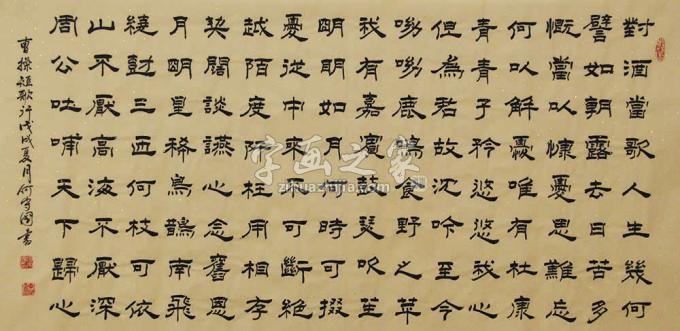 對酒當歌人生幾何
譬如朝露去日苦多
慨當以慷憂思難忘
何以解憂唯有杜康
青青子衿悠悠我心
但為君故沈吟至今
呦呦鹿鳴食野之苹
我有嘉賓鼓瑟吹笙
明明如月何時可掇
憂從中來不可斷絕
越陌度阡枉用相存
契闊談讌心念舊恩
月明星稀烏鵲南飛
繞樹三匝何枝可依
山不厭高海不厭深
周公吐哺天下歸心
曹操短歌行戊戌夏月何國書
字画之家
zihuazhijia.com